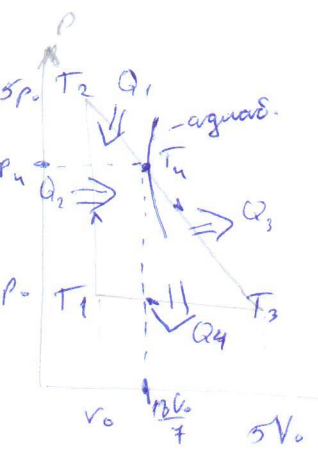 P
5P₀ T₂ Q₁
-адиаб.
Pₙ Tₙ
Q₂ Q₃
P₀ T₁ T₃
Q₄
V₀ 13V₀/7 5V₀